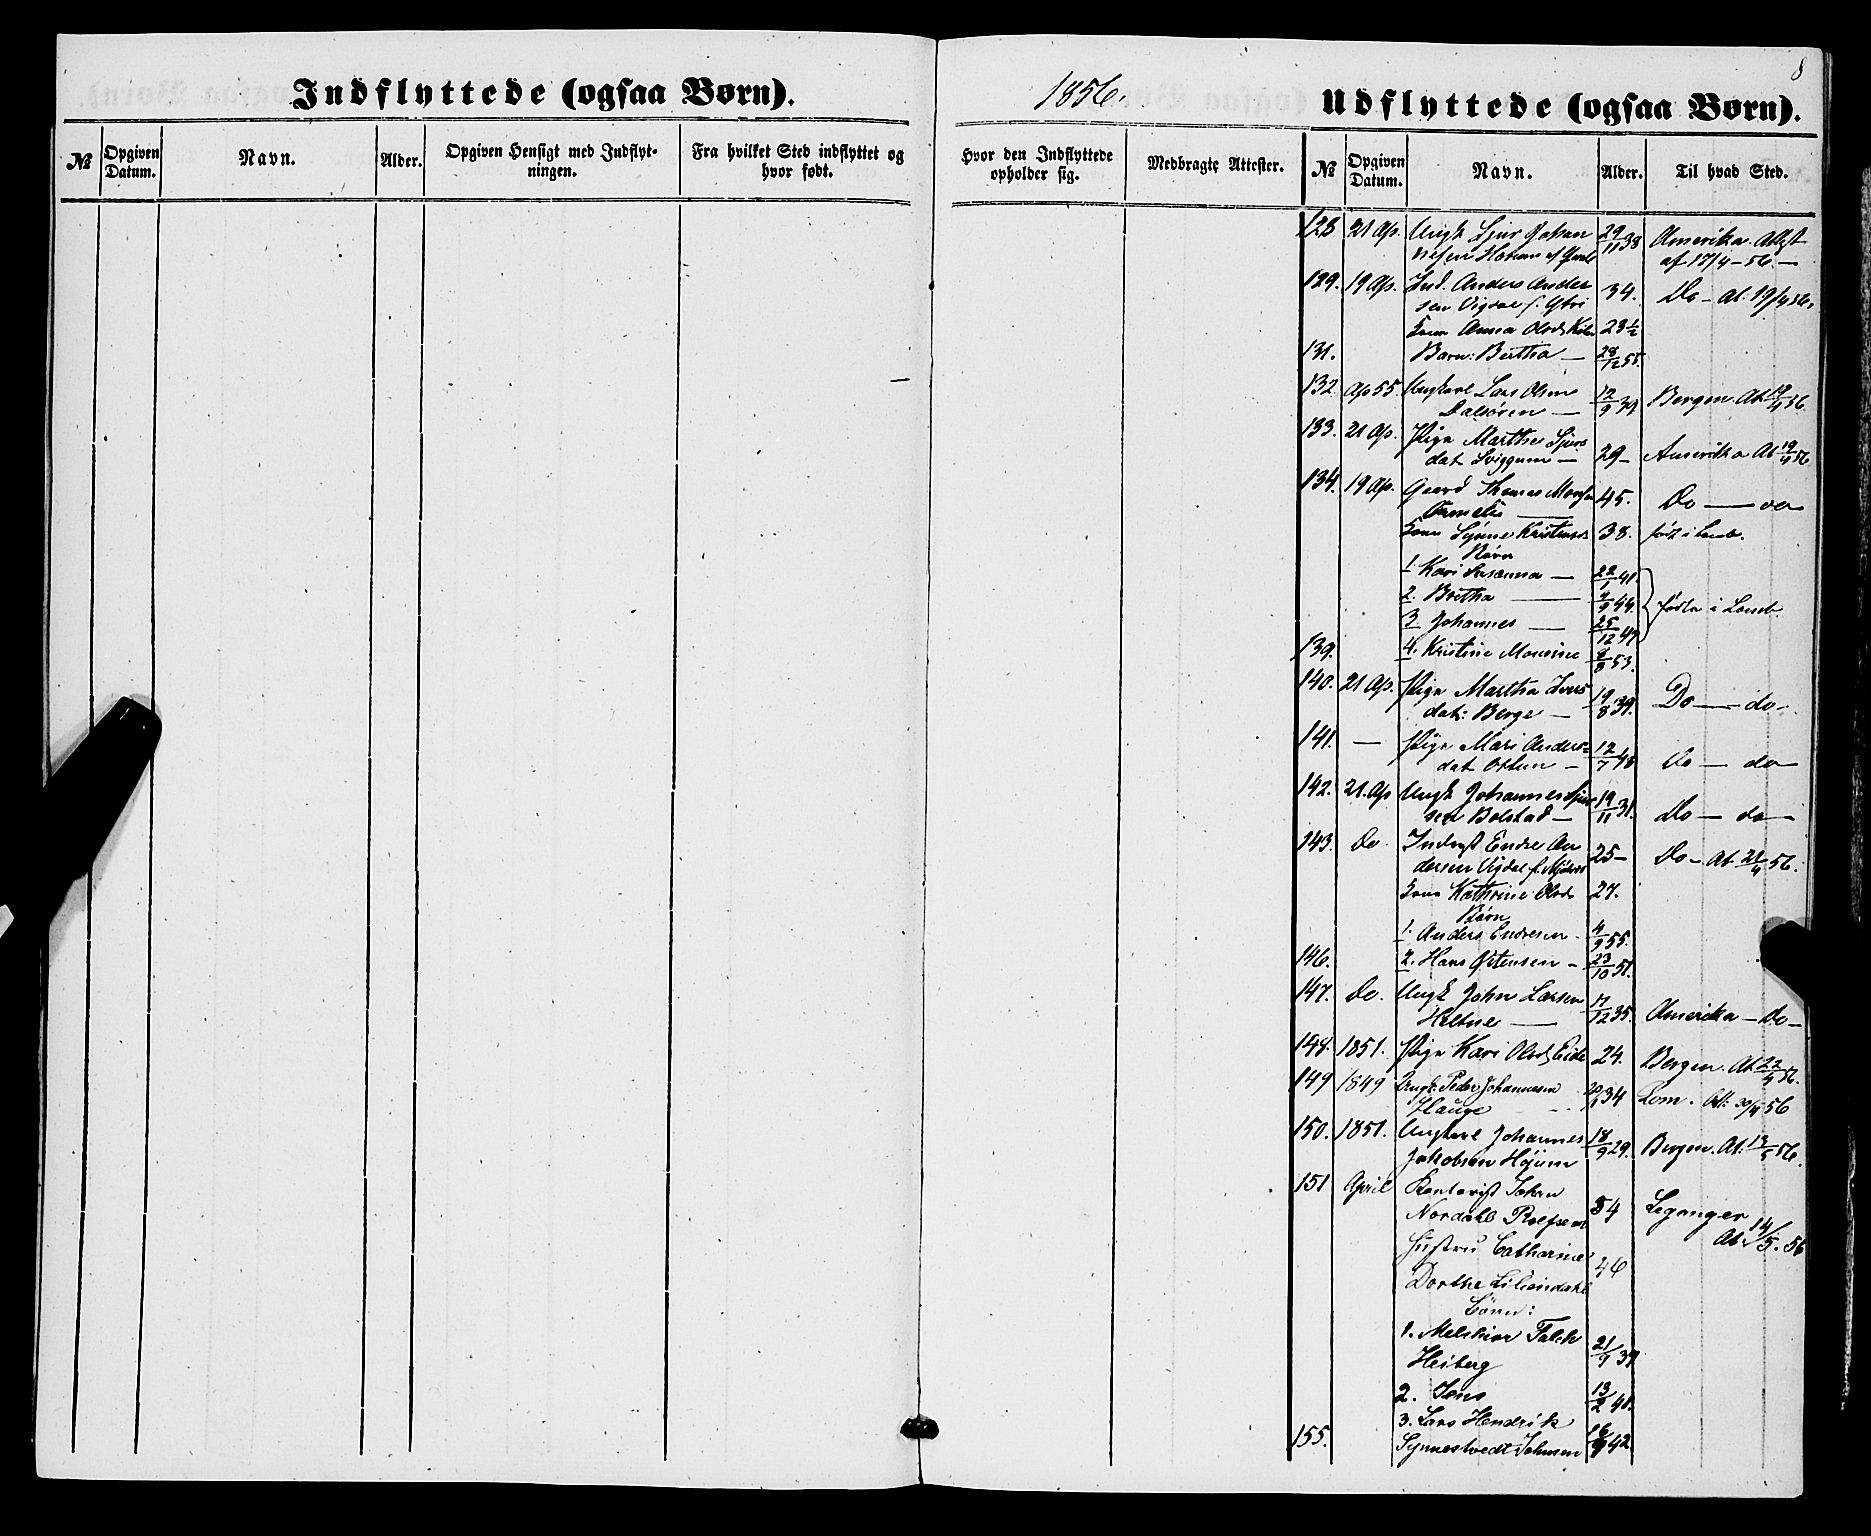 8
Indflyttede (ogsaa Børn).
1856.
Udflyttede (ogsaa Børn).
№ Opgiven Datum. Navn. Alder. Opgiven Hensigt med Indflytningen. Fra hvilket Sted indflyttet og hvor født.
Hvor den Indflyttede opholder sig. Medbragte Attester. № Opgiven Datum. Navn. Alder. Til hvad Sted.
128 21 Ap. Ungk Sjur Johan 29/11 38 Amerika. Attst
af 17/4-56.—
129. 19 Ap. Ind. Anders Ander 34. Do – At. 19/4 56.
sen Vigdal f.
Kone Anna Olsd 23½
131. Barn: Bertha — 28/12 55.
132 Ap 55. Ungkarl Lars Olsen 12/9 39 Bergen. At 19/4 56.
Dalsøren —
133. 21 Ap. Pige Marthe Sjurs
dat Sviggum — 29– Amerika At 19/4 56
134. 19 Ap. Gaard Thomas Monsen 45. Do —
Ormelid —
Kone Synne Kristensd 38. født i
Børn
1. Kari Susanna — 22/1 41.
2. Britha — 4/9 44. fødte i
3. Johannes — 25/12 47
139. 4. Kristine Monsine 8/8 53.
140. 21 Ap. Pige Martha Ivers 19/8 39. Do — do.
dat: Berge —
141. — Pige Mari Anders= 12/7 48 Do — do
dat —
142. 21. Ap Ungk Johannes Sjur 19/11 31. Do — do —
sen Bolstad —
143. Do. Inderst Endre An 25– Do – At 21/4 56.
dersen Vigdal f.
Kone Kathrine Olsd 27.
Børn
1. Anders Endresen. 4/9 55.
146. 2. Hans Østensen – 23/10 51.
147. Do. Ungk John Larsen 17/12 35. Amerika – Do –
Heltne —
148. 1851. Pige Kari Olsd. Eide 24. Bergen. At 22/4 56.
149 1849 Ungk. Peder Johannesen 34 Lom. Att: 30/4 56
Hauge
150. 1851. Ungkarl Johannes 18/9 29. Bergen. At. 13/5 56.
Jakobsen Høium
151 April Kontorist Johan
Nordahl Rolfsen 54 Leganger
Hustru Catharine At 14/5. 56
Dorthe Liliendahl 46
Børn:
1. Melchior Falch
Heiberg 21/9 39
2. Jens 13/2 41.
3. Lars Hendrik
155. Synnestvedt Johnsen 16/9 42.